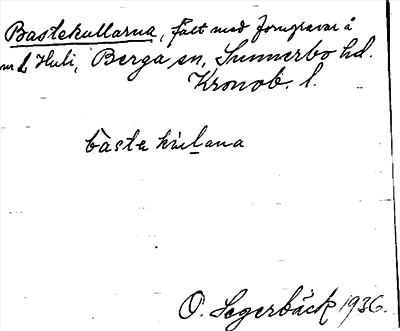 Bastekullarna, fält med forngravar å
md Huli, Berga sn, Sunnerbo hd.
Kronob. l.
bàste kulana
O. Segerbäck 1936.